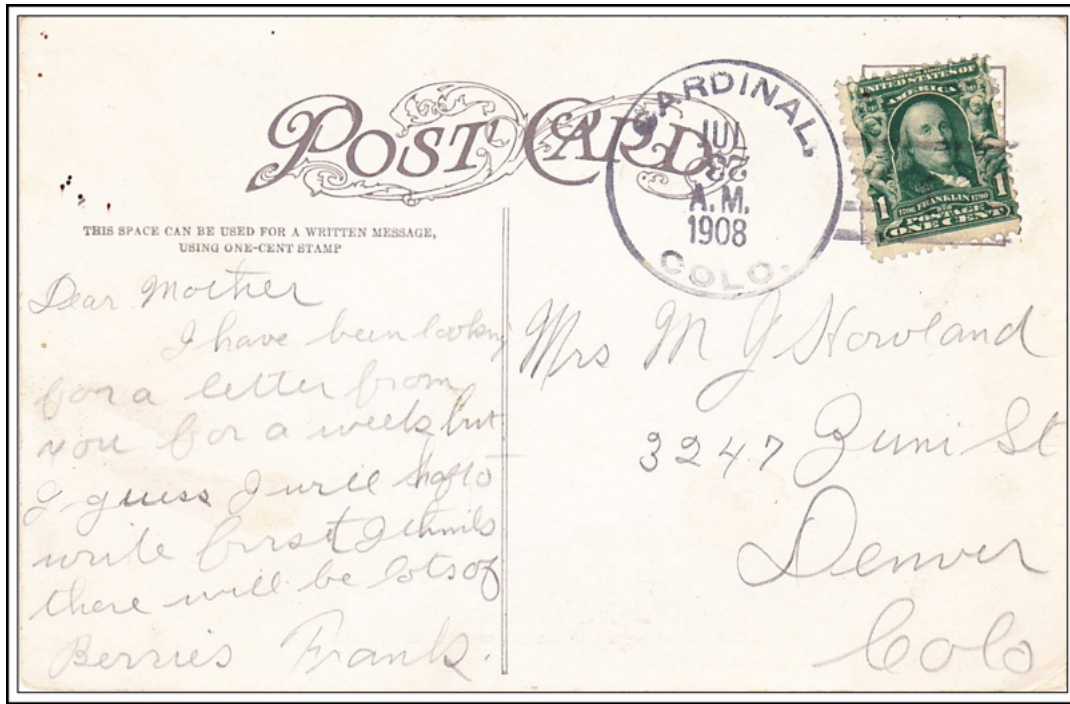 POST CARD
CARDINAL,
JUL
A.M.
1908
COLO.
SERIES 1902
UNITED STATES OF
AMERICA
1 1
1706 FRANKLIN 1790
POSTAGE
ONE CENT
THIS SPACE CAN BE USED FOR A WRITTEN MESSAGE,
USING ONE-CENT STAMP
Dear Mother
I have been looking
for a letter from
you for a week but
I guess I will hafto
write first I think
there will be lots of
Berries Frank.
Mrs M J Howland
3247 Zuni St
Denver
Colo